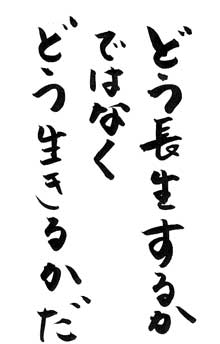 どう長生するか
ではなく
どう生きるかだ